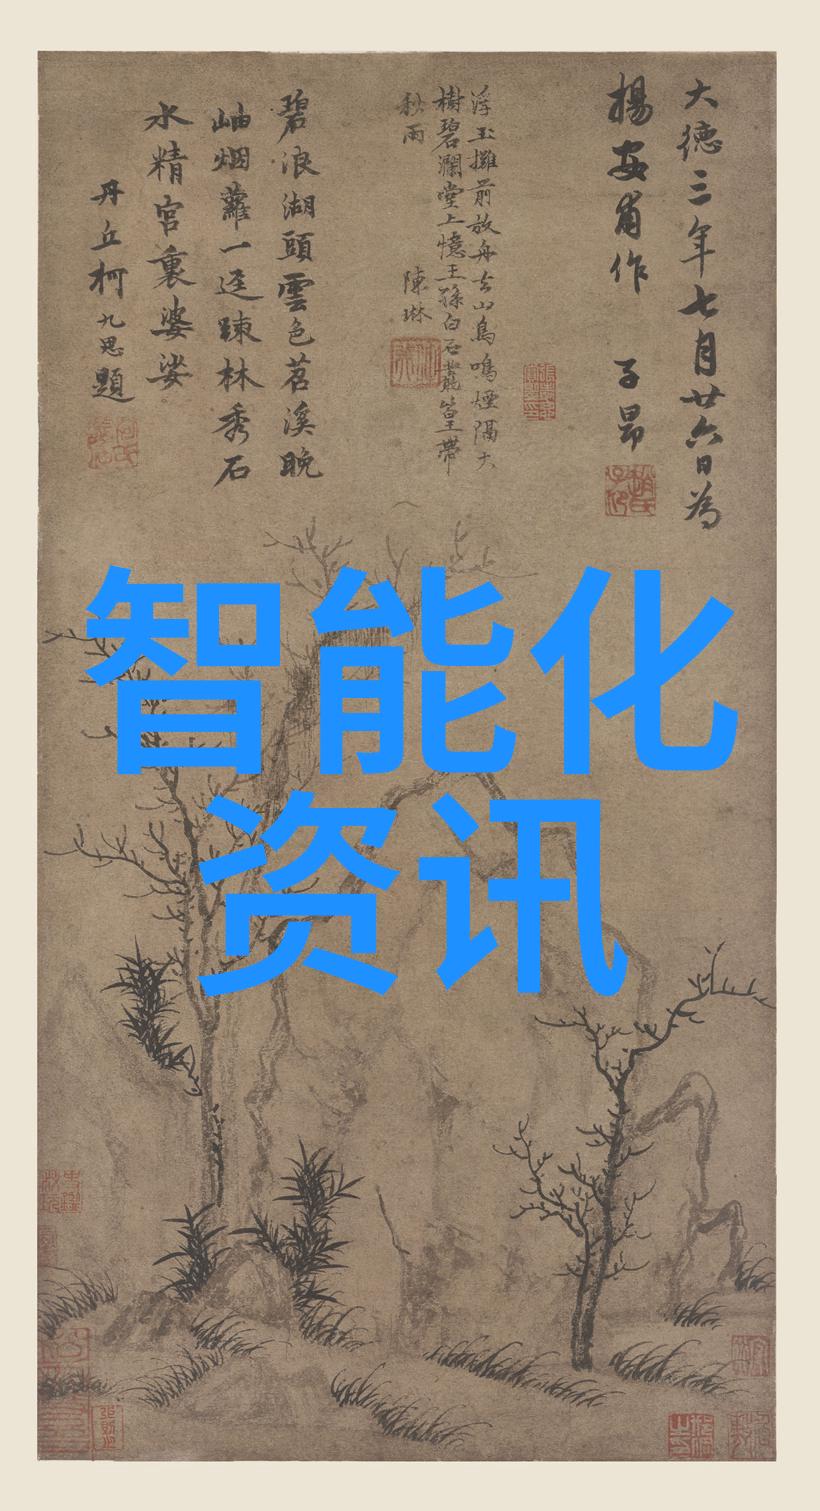 大德三年七月廿六日為
楊安甫作 子昂
浮玉攤前放舟去山鳥鳴煙隔大
樹碧瀾堂上憶王孫白石叢篁帶
秋雨 陳琳
碧浪湖頭雲色茗溪晚
岫烟蘿一逕踈林秀石
水精宮裏婆娑
丹丘柯九思題
智能化
资讯